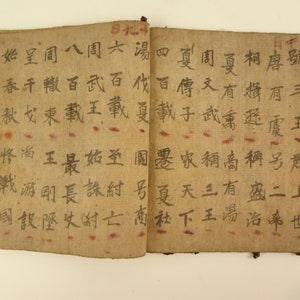 上世
唐有虞号二帝
相揖遜稱盛治
夏有禹商有湯
周文武稱三王
夏傳子家天下
四百載遷夏社
湯伐夏國号商
六百載至紂亡
周武王始誅紂
八百載最長久
周轍東王剛墜
呈干戈尚游說
始春秋終戰國